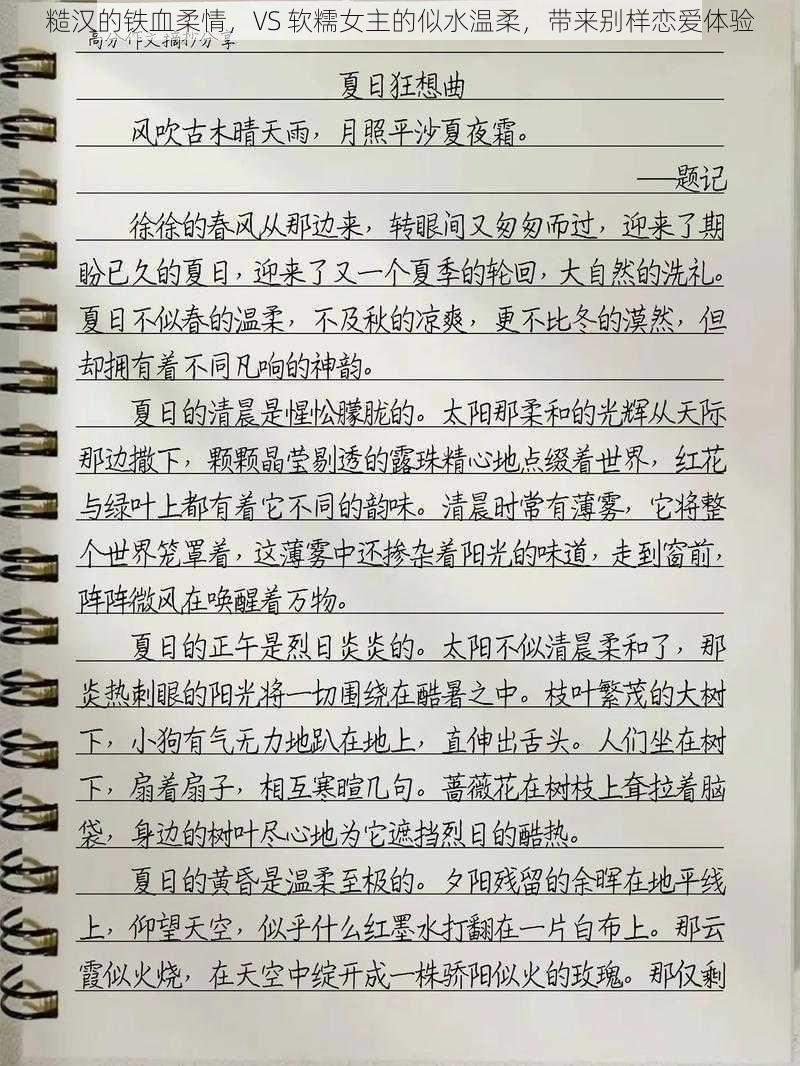 糙汉的铁血柔情，VS 软糯女主的似水温柔，带来别样恋爱体验
高分作文摘抄分享
夏日狂想曲
风吹古木晴天雨，月照平沙夏夜霜。
——题记
徐徐的春风从那边来，转眼间又匆匆而过，迎来了期
盼已久的夏日，迎来了又一个夏季的轮回，大自然的洗礼。
夏日不似春的温柔，不及秋的凉爽，更不比冬的漠然，但
却拥有着不同凡响的神韵。
夏日的清晨是惺忪朦胧的。太阳那柔和的光辉从天际
那边撒下，颗颗晶莹剔透的露珠精心地点缀着世界，红花
与绿叶上都有着它不同的韵味。清晨时常有薄雾，它将整
个世界笼罩着，这薄雾中还掺杂着阳光的味道，走到窗前，
阵阵微风在唤醒着万物。
夏日的正午是烈日炎炎的。太阳不似清晨柔和了，那
炎热刺眼的阳光将一切围绕在酷暑之中。枝叶繁茂的大树
下，小狗有气无力地趴在地上，直伸出舌头。人们坐在树
下，扇着扇子，相互寒暄几句。蔷薇花在树枝上耷拉着脑
袋，身边的树叶尽心地为它遮挡烈日的酷热。
夏日的黄昏是温柔至极的。夕阳残留的余晖在地平线
上，仰望天空，似乎什么红墨水打翻在一片白布上。那云
霞似火烧，在天空中绽开成一株骄阳似火的玫瑰。那仅剩